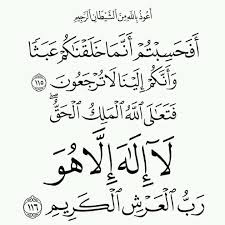 أَعُوذُ بِاللَّهِ مِنَ الشَّيْطَانِ الرَّجِيمِ
أَفَحَسِبْتُمْ أَنَّمَا خَلَقْنَاكُمْ عَبَثًا
وَأَنَّكُمْ إِلَيْنَا لَا تُرْجَعُونَ ١١٥
فَتَعَالَى اللَّهُ الْمَلِكُ الْحَقُّ ۖ
لَا إِلَٰهَ إِلَّا هُوَ
رَبُّ الْعَرْشِ الْكَرِيمِ ١١٦